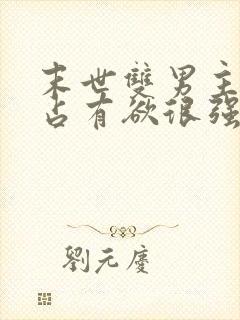 末世雙男主
占有欲很强
劉元慶